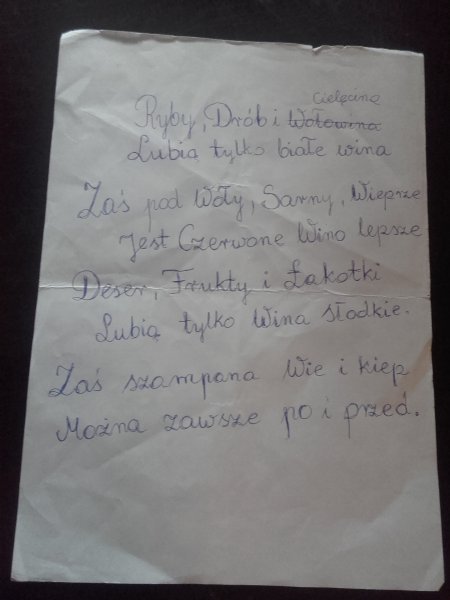 Cielęcina
Ryby, Drób i Wołowina
Lubią tylko białe wina
Zaś pod Woły, Sarny, Wieprze
Jest Czerwone Wino lepsze
Deser, Frukty i Łakotki
Lubią tylko Wina Słodkie.
Zaś szampana Wie i kiep
Można zawsze po i przed.